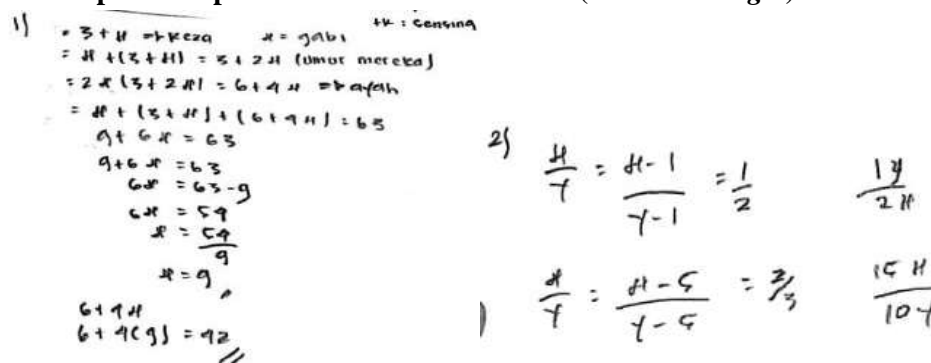 tk : Sensing
1) • 3 + x => Reza x = gabi
= x + (3 + x) = 3 + 2x (umur mereka)
= 2 x (3 + 2x) = 6 + 4x => ayah
= x + (3 + x) + (6 + 4x) = 63
9 + 6x = 63
9 + 6x = 63
6x = 63 - 9
6x = 54
x = 54/9
x = 9
6 + 4x
6 + 4(9) = 42
2) x/y = x-1/y-1 = 1/2 1y/2x
x/y = x-5/y-5 = 2/3 15x/10y